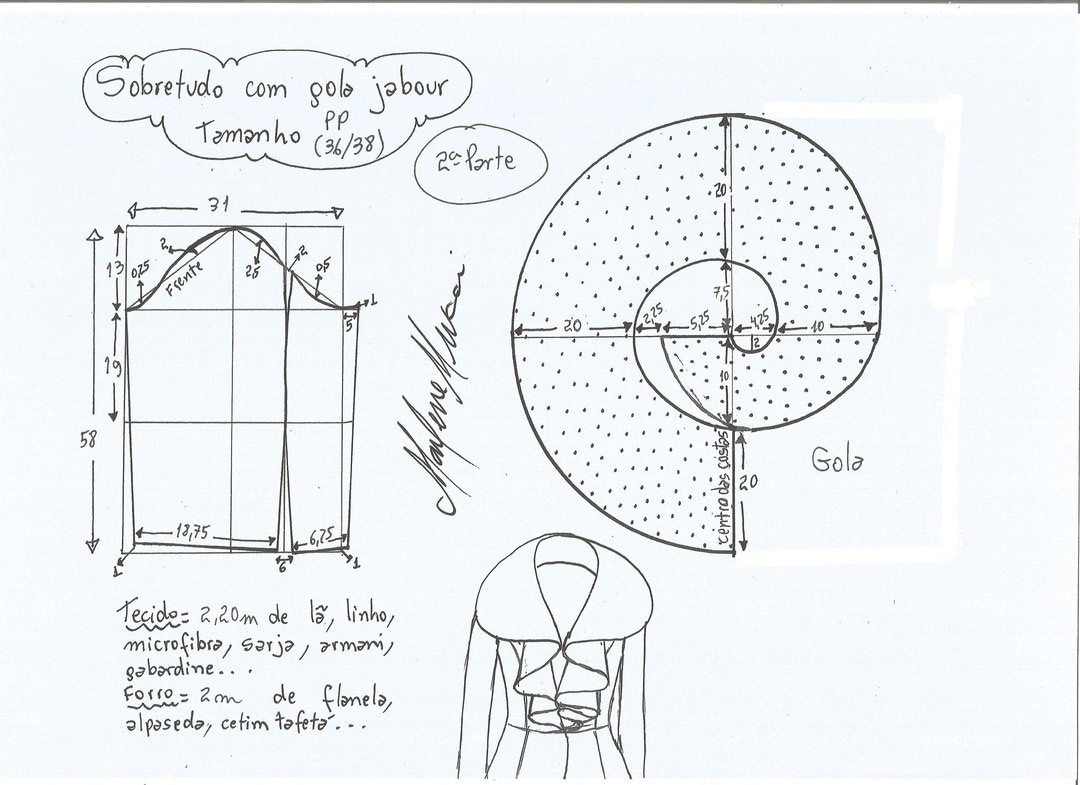 Sobretudo com gola jabour
Tamanho PP
(36/38)
2ª Parte
31
13
0,25
2
Frente
2,5
2
0,5
1
5
19
58
18,75
6,25
1
6
1
20
7,5
20
2,25
5,25
4,25
10
2
10
centro das costas
20
Gola
Marlene Mukai
Tecido= 2,20m de lã, linho,
microfibra, sarja, armani,
gabardine...
Forro= 2m de flanela,
alpaseda, cetim tafetá...